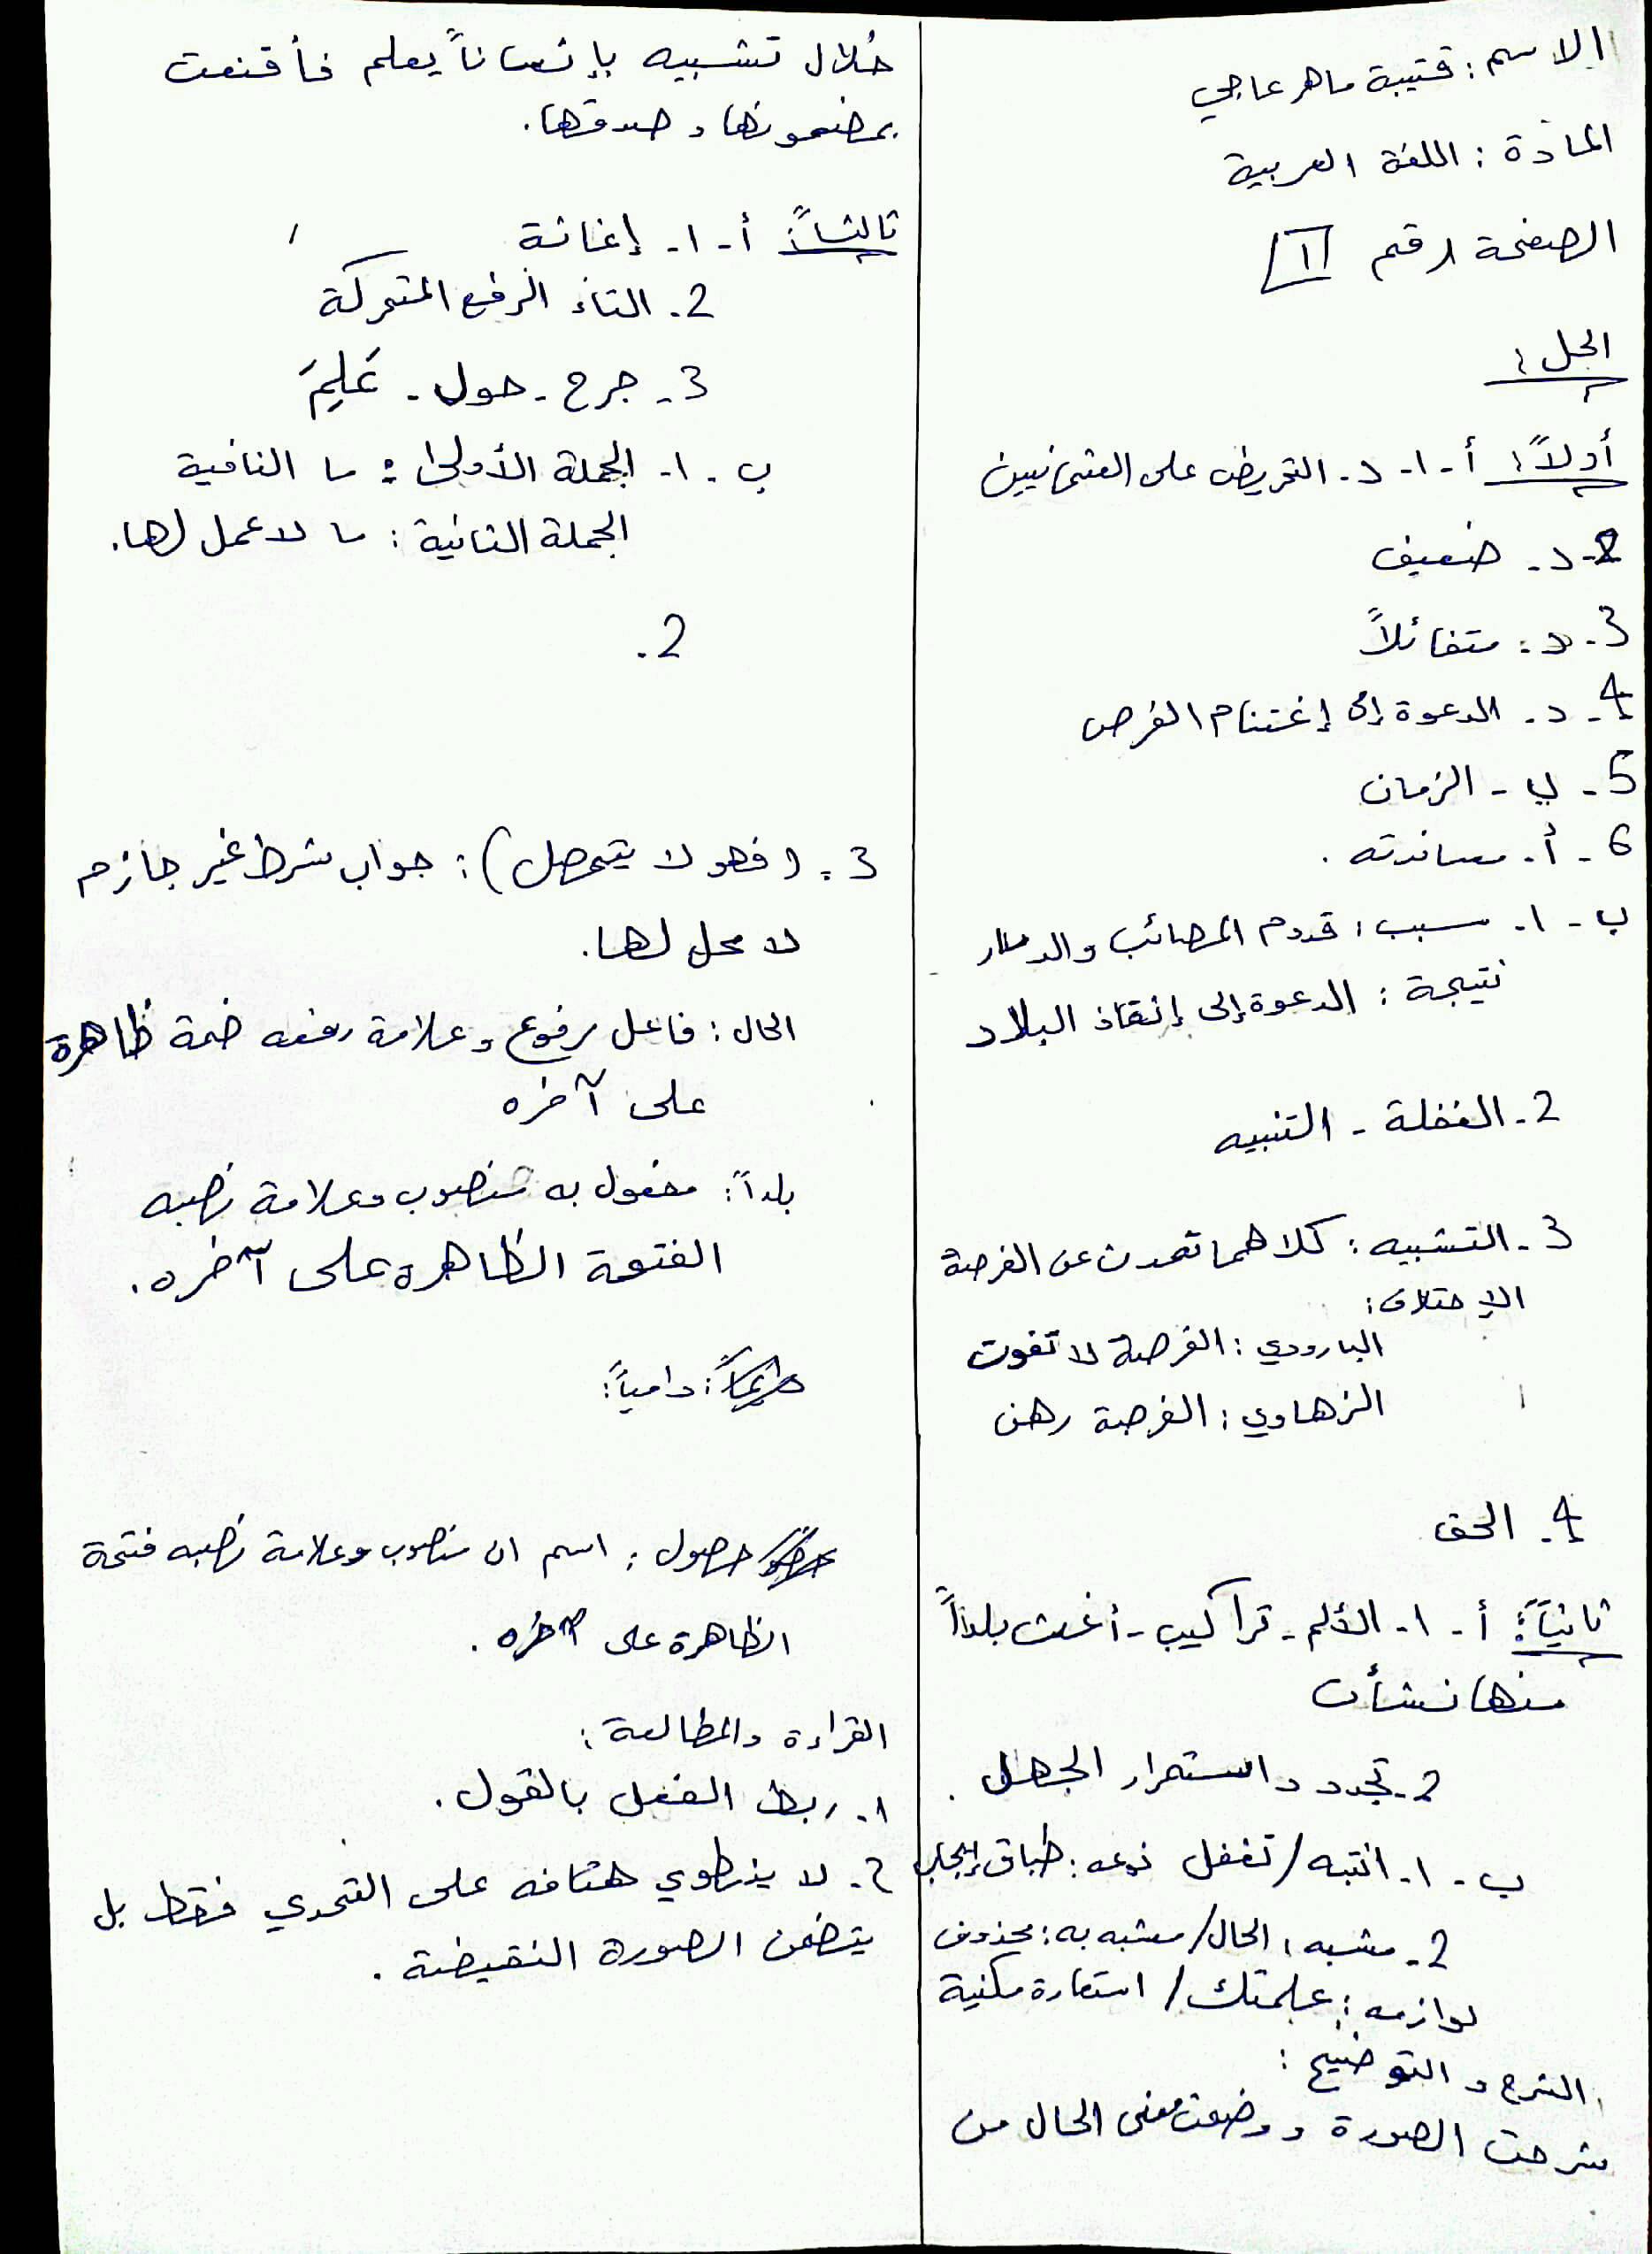 الاسم : قتيبة ماهر عاجي
المادة : اللغة العربية
الصفحة رقم ١
الحل :
أولاً : أ - ١ - د - التحريض على العثمانيين
2 - د - ضعيف
3 - د : متفائلاً
4 - د - الدعوة إلى إغتنام الفرص
5 - ب - الزمان
6 - أ - مساندته .
ب - ١ - سبب : قدوم المصائب والدمار
نتيجة : الدعوة إلى إنقاذ البلاد
2 - الغفلة - التنبيه
3 - التشبيه : كلاهما تحدث عن الفرصة
الإختلاف :
البارودي : الفرصة لا تفوت
الزهاوي : الفرصة رهن
4 - الحق
ثانياً : أ - ١ - الألم - تراكيب - أغث بلداً
منها نشأت
2 - تجدد واستمرار الجهل .
ب - ١ - انتبه / تغفل نوعه : طباق إيجاب
2 - مشبه : الحال / مشبه به : محذوف
لوازمه : علمتك / استعارة مكنية
الشرح و التوضيح :
شرحت الصورة ووضحت معنى الحال من
خلال تشبيه بإنساناً يعلم فأقنعت
بمضمونها وصدقها .
ثالثاً : أ - ١ - إغاثة
2 - التاء الرفع المتحركة
3 - جرح - حول - عَلِمَ
ب - ١ - الجملة الأولى : ما النافية
الجملة الثانية : ما لا عمل لها .
2 .
3 . ( فهو لا يتحصل ) : جواب شرط غير جازم
لا محل لها .
الحال : فاعل مرفوع وعلامة رفعه ضمة ظاهرة
على آخره
بلداً : مفعول به منصوب وعلامة نصبه
الفتحة الظاهرة على آخره .
دامياً :
حصول : اسم ان منصوب وعلامة نصبه فتحة
الظاهرة على آخره .
القراءة والمطالعة :
١ - ربط الفعل بالقول .
2 - لا ينطوي هتافه على التحدي فقط بل
يتضمن الصورة النقيضة .